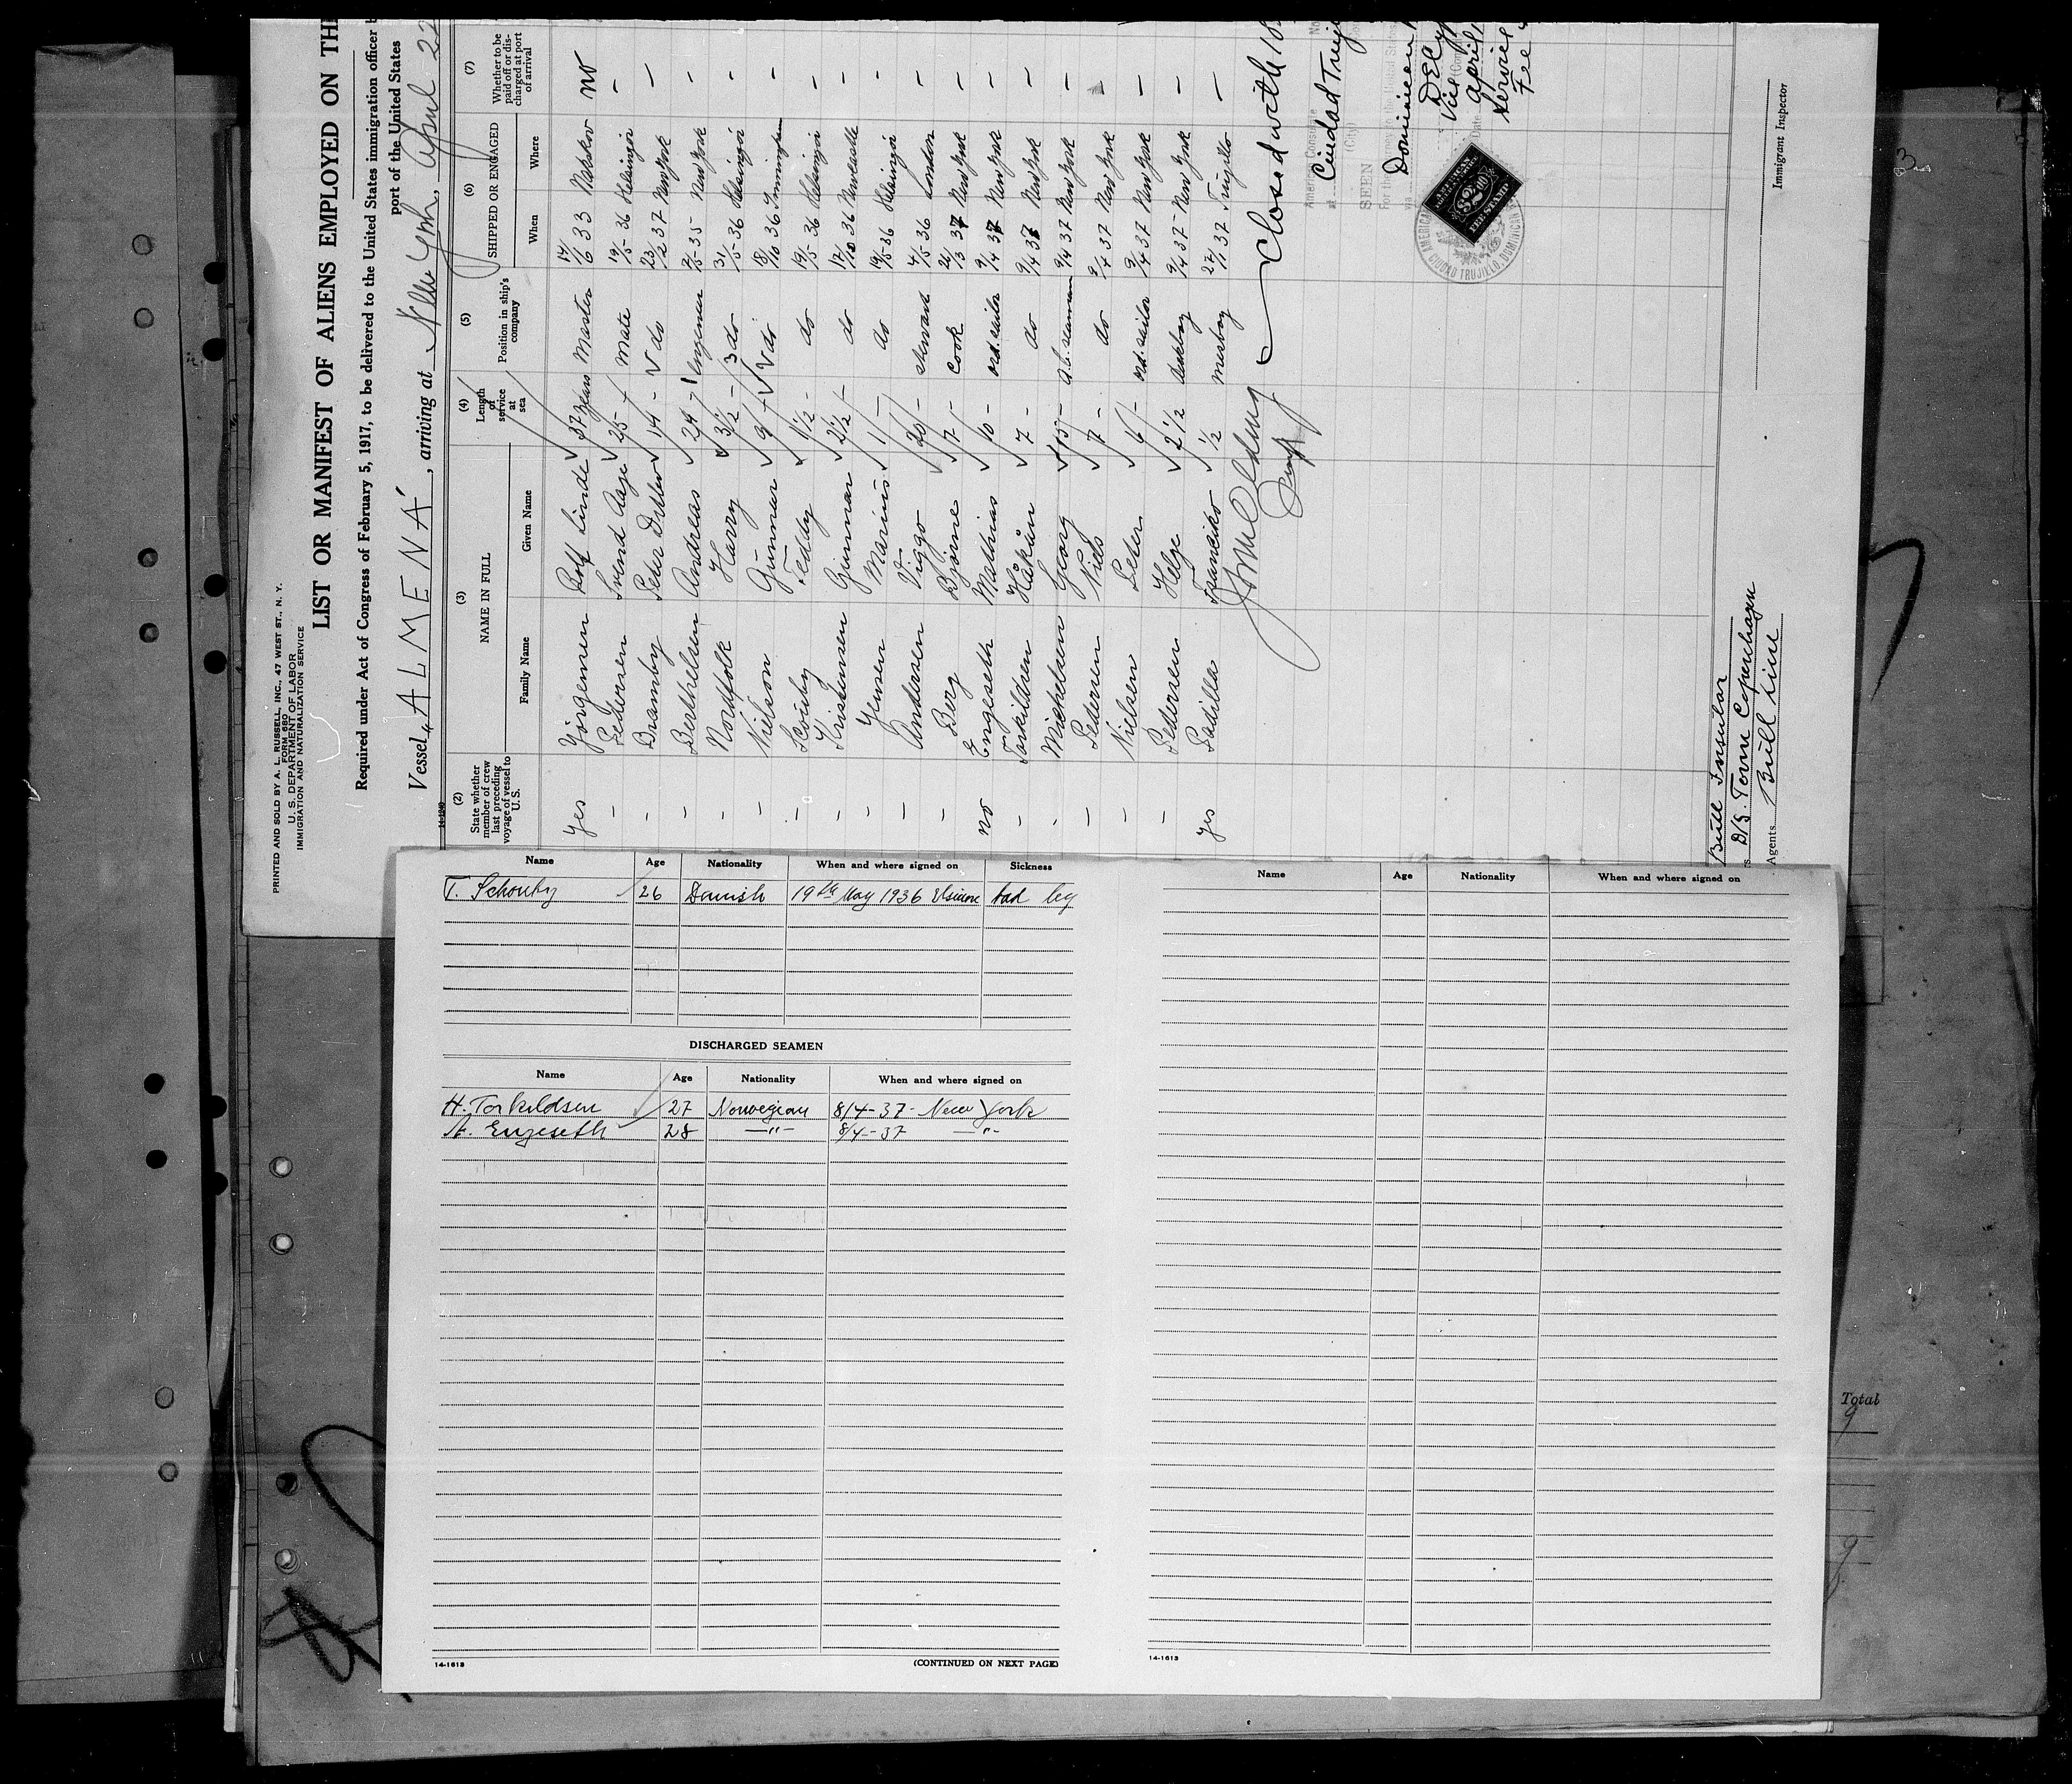 PRINTED AND SOLD BY A. L. RUSSELL, INC., 47 WEST ST., N. Y.
FORM 680
U. S. DEPARTMENT OF LABOR
IMMIGRATION AND NATURALIZATION SERVICE
LIST OR MANIFEST OF ALIENS EMPLOYED ON THE
Required under Act of Congress of February 5, 1917, to be delivered to the United States immigration officer
port of the United States
Vessel "ALMENA", arriving at New York, April 22
14-1240
(2) (3) (4) (5) (6) (7)
State whether member of crew last preceding voyage of vessel to U. S.
NAME IN FULL
Family Name Given Name
Length of service at sea
Position in ship's company
SHIPPED OR ENGAGED
When Where
Whether to be paid off or discharged at port of arrival
Yes Jörgensen Rolf Linde 37 years Master 14/6 33 Nakskov no
– Pedersen Svend Aage 25 – mate 19/5-36 Helsingör –
– Bramby Peter 14 – do 23/2 37 New York –
– Berthelsen Andreas 24 – 1 engineer 2/5-35 New York –
– Nordfolk Harry 3½ – 3 do 31/5-36 Helsingör –
– Nielson Gunnar 9 – do 18/10 36 –
– Scouby Teddy 1½ – do 19/5-36 Helsingör –
– Kristensen Gunnar 2½ – do 17/10 36 –
– Jensen Marius 1 – do 19/5-36 Helsingör –
– Andersen Viggo 20 – steward 4/5-36 London –
– Berg Bjørne 7 – cook 24/3 37 New York –
no Engeseth Mathias 10 – ord. sailor 9/4 37 New York –
– Torkildsen Håkån 7 – do 9/4 37 New York –
– Michelsen Georg 15 – a.b. seaman 9/4 37 New York –
– Pedersen Niels 7 – do 9/4 37 New York –
– Nielsen Peder 6 – ord. sailor 9/4 37 New York –
– Pedersen Helge 2½ deckboy 9/4 37 – New York –
yes Padilla Fransciko ½ messboy 27/1 37 Trujillo –
Closed with 18
American Consulate
at Ciudad Truj
(City)
SEEN
For the journey to the United States
via
Dominican
Vice
Date April
Service
Fee
AMERICAN
$2.00
FEE STAMP
CIUDAD TRUJILLO, DOMINICAN
Bull Insular
D/S. Torm Copenhagen
Agents Bull Line
Immigrant Inspector
Name Age Nationality When and where signed on Sickness
T. Schouby 26 Danish 19th May 1936 bad leg
DISCHARGED SEAMEN
Name Age Nationality When and where signed on
H. Torkildsen 27 Norwegian 8/4-37- New York
Engeseth 28 —"— 8/4-37 —"—
14-1613
(CONTINUED ON NEXT PAGE)
Name Age Nationality When and where signed on
14-1613
Total
9
9